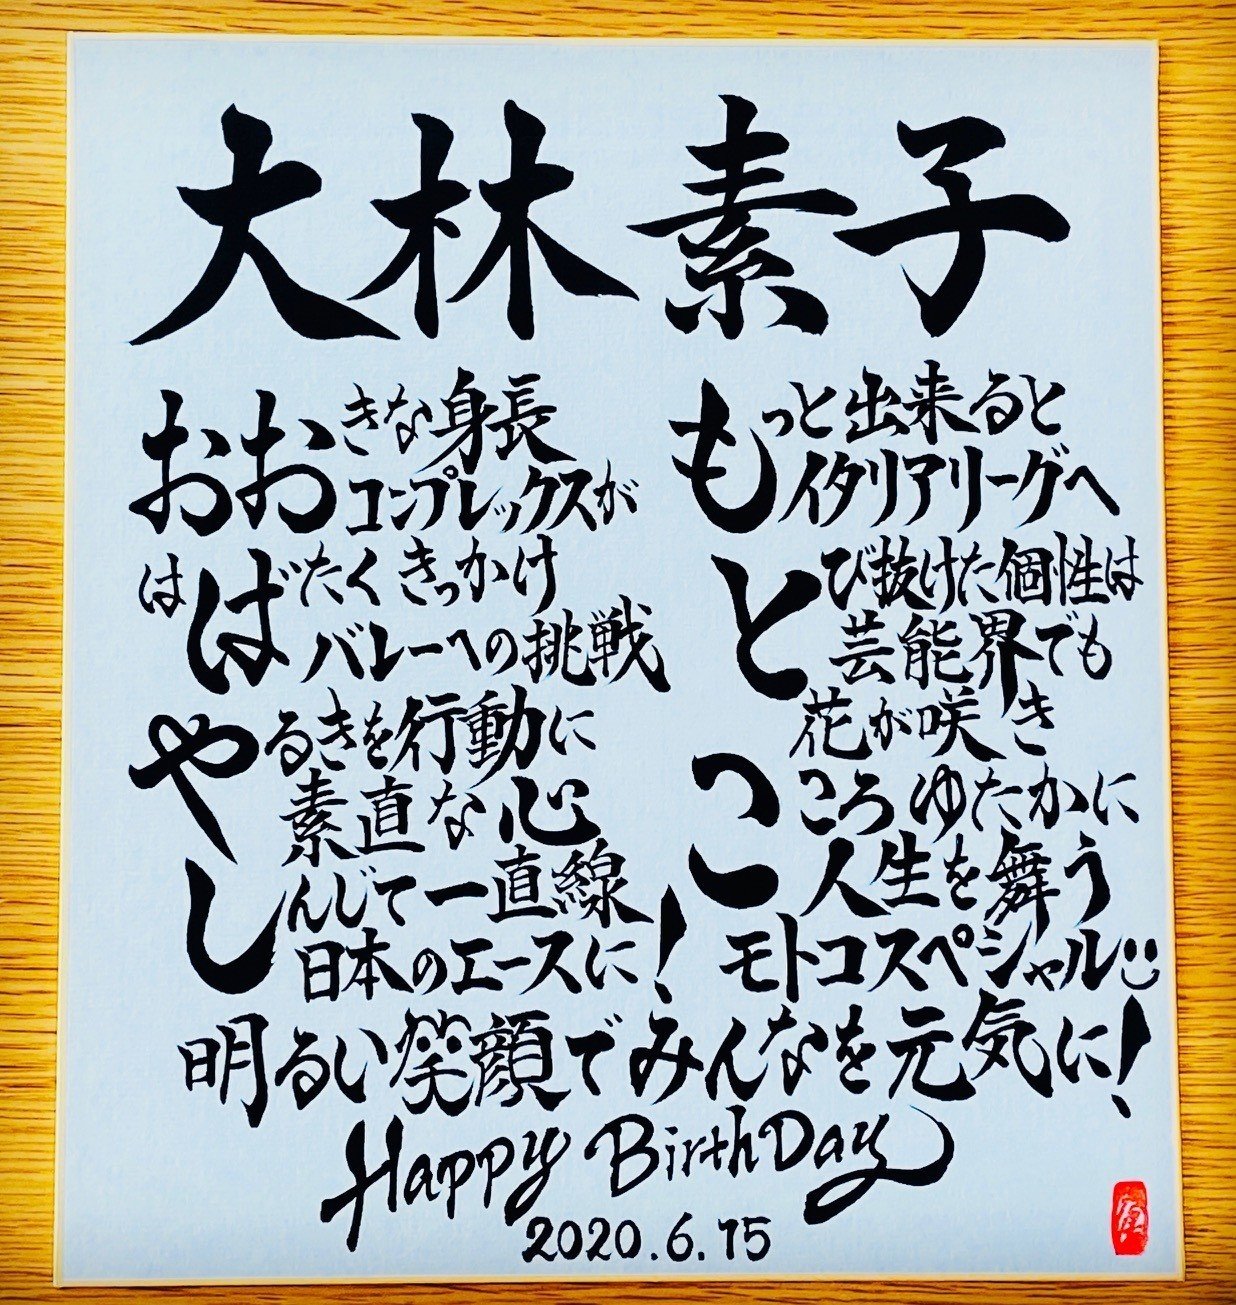 大林素子
おおきな身長
コンプレックスが
はばたくきっかけ
バレーへの挑戦
やるきを行動に
素直な心
しんじて一直線
日本のエースに!
もっと出来ると
イタリアリーグへ
とび抜けた個性は
芸能界でも
花が咲き
こころゆたかに
人生を舞う
モトコスペシャル
明るい笑顔でみんなを元気に!
Happy BirthDay
2020.6.15